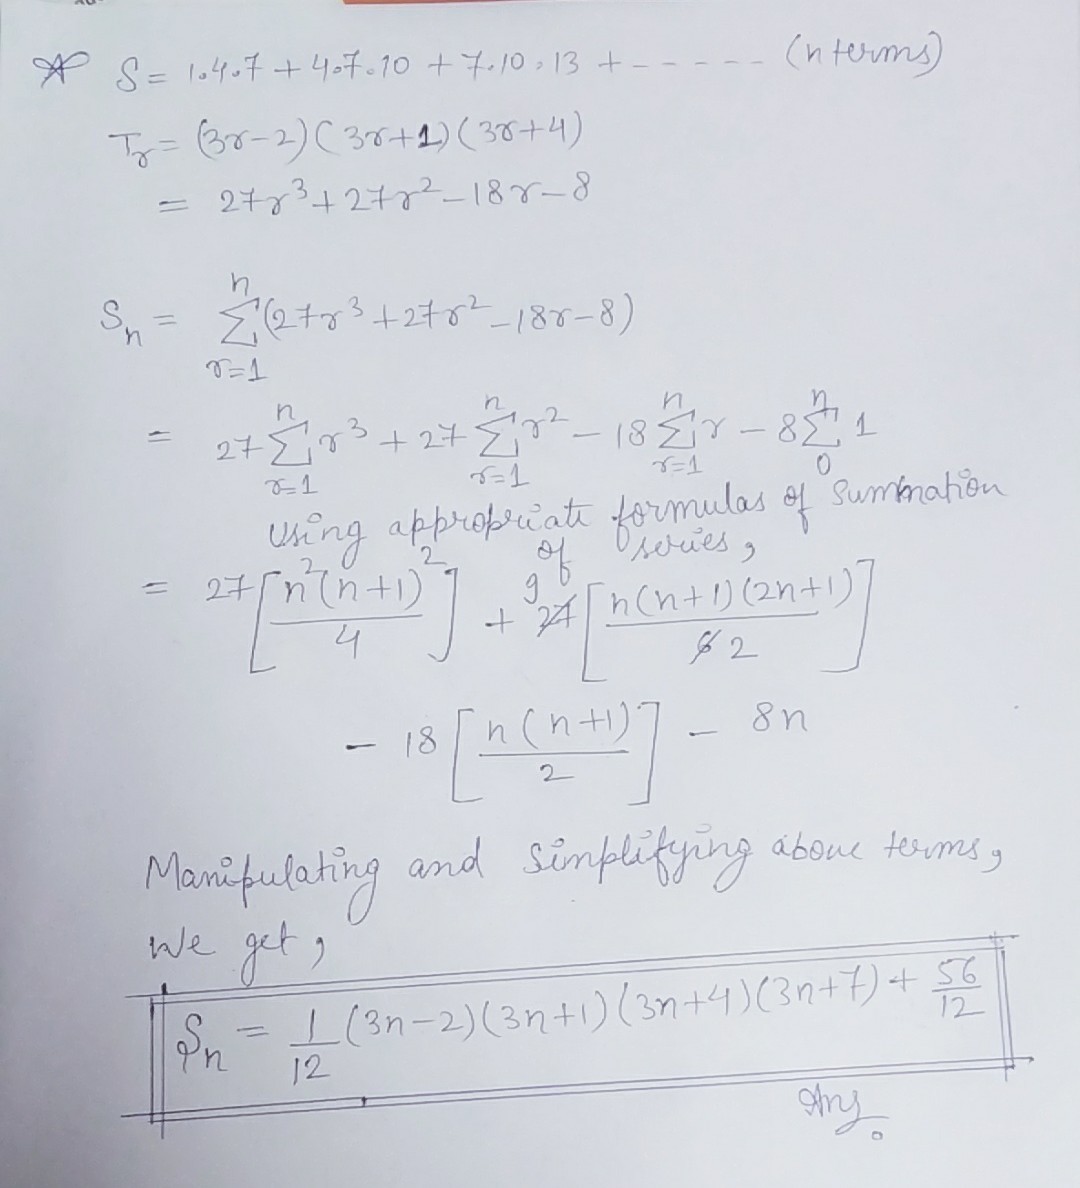 * S = 1.4.7 + 4.7.10 + 7.10.13 + - - - - - (n terms)
Tr = (3r-2)(3r+1)(3r+4)
= 27r³ + 27r² - 18r - 8
Sn = n Σ r=1 (27r³ + 27r² - 18r - 8)
= 27 n Σ r=1 r³ + 27 n Σ r=1 r² - 18 n Σ r=1 r - 8 n Σ 0 1
using appropriate formulas of summation
of series,
= 27 [n²(n+1)²/4] + 9 27 [n(n+1)(2n+1)/6 2]
- 18 [n(n+1)/2] - 8n
Manipulating and Simplifying above terms,
We get,
Sn = 1/12 (3n-2)(3n+1)(3n+4)(3n+7) + 56/12
Ans.